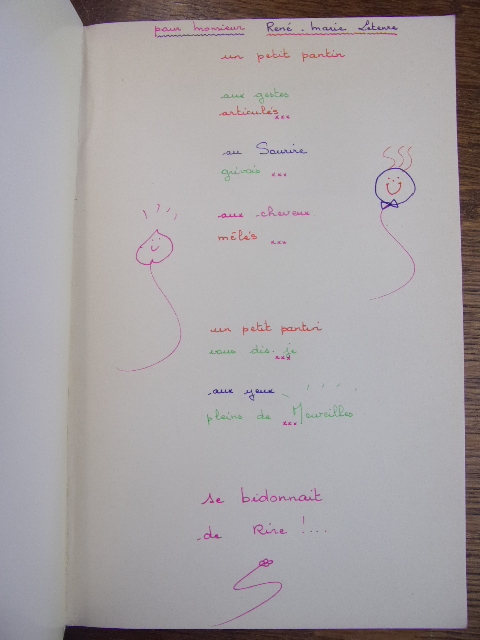 pour Monsieur René-Marie Leterre
un petit pantin
aux gestes
articulés xxx
au Sourire
grivois xxx
aux cheveux
mêlés xxx
un petit pantin
vous dis-je
xxx
aux yeux
pleins de Merveilles
xxx
se bidonnait
de Rire !...